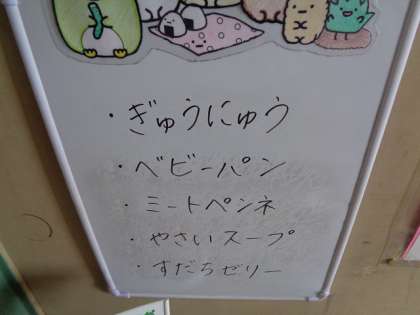 ・ぎゅうにゅう
・ベビーパン
・ミートペンネ
・やさいスープ
・すだちゼリー